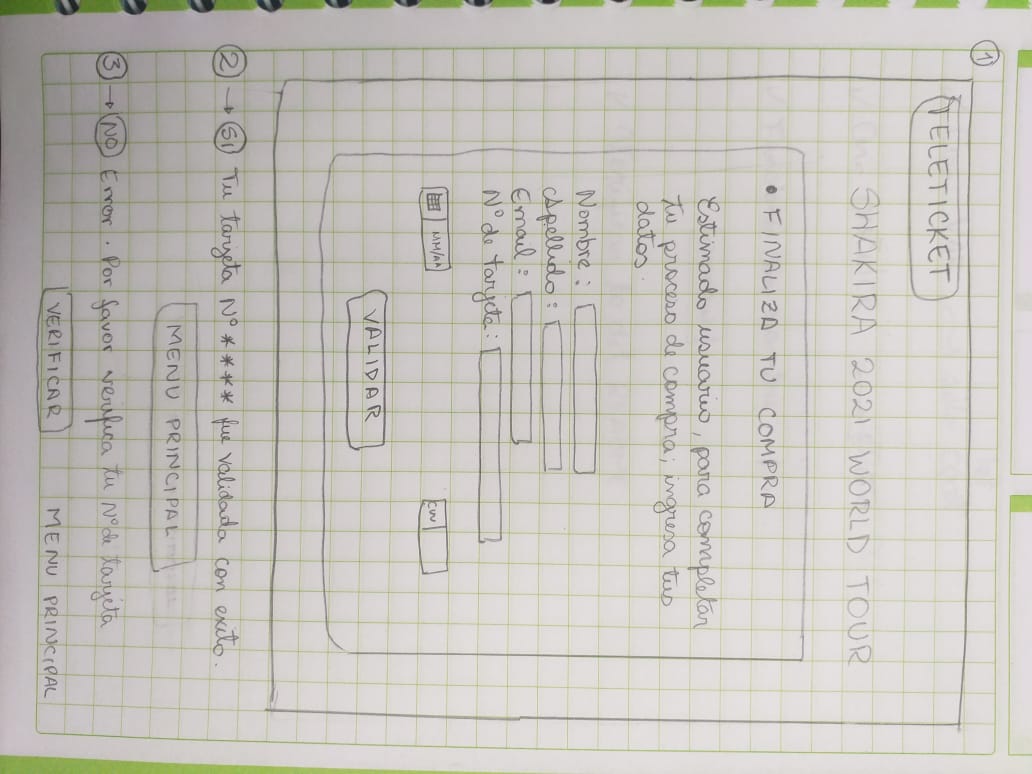 1
TELETICKET
SHAKIRA 2021 WORLD TOUR
• FINALIZA TU COMPRA
Estimado usuario, para completar
tu proceso de compra, ingresa tus
datos.
Nombre:
Apellido:
Email:
N° de tarjeta:
MM/AA CVV
VALIDAR
2 → SI Tu tarjeta N° **** fue validada con exito.
MENU PRINCIPAL
3 → NO Error. Por favor verifica tu N° de tarjeta
VERIFICAR MENU PRINCIPAL